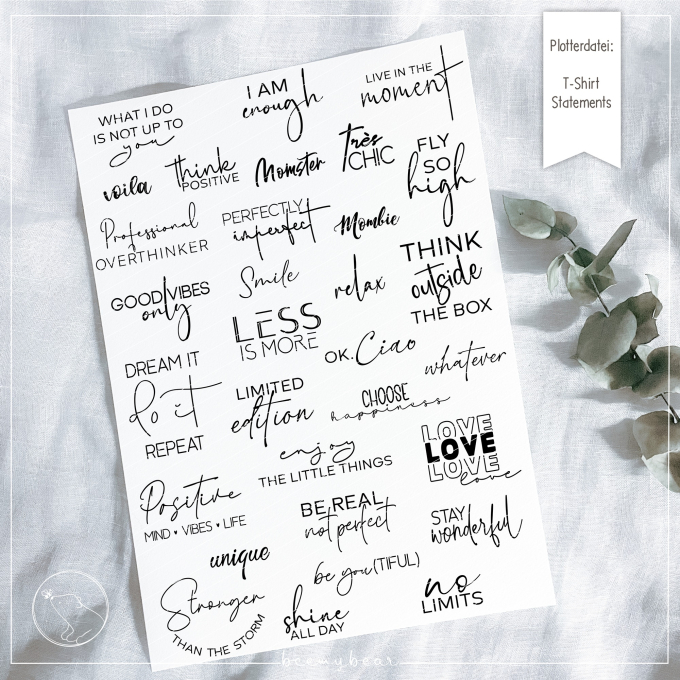 Plotterdatei:
T-Shirt
Statements
WHAT I DO
IS NOT UP TO
you
I AM
enough
LIVE IN THE
moment
voila
think
POSITIVE
Momster
Très
CHIC
FLY
SO
high
Professional
OVERTHINKER
PERFECTLY
imperfect
Mombie
THINK
outside
THE BOX
GOOD VIBES
only
Smile
relax
LESS
IS MORE
OK. Ciao
whatever
DREAM IT
do it
REPEAT
LIMITED
edition
CHOOSE
happiness
enjoy
THE LITTLE THINGS
LOVE
LOVE
LOVE
love
Positive
MIND • VIBES • LIFE
BE REAL
not perfect
STAY
wonderful
unique
be you(TIFUL)
Stronger
THAN THE STORM
shine
ALL DAY
no
LIMITS
beemybear